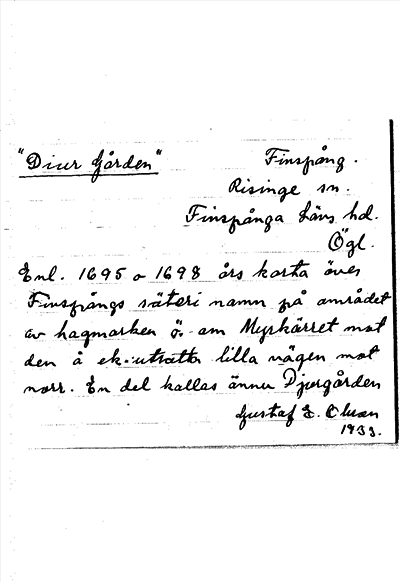 "Diur Gården" Finspång.
Risinge sn.
Finspånga Läns hd.
Ögl.
Enl. 1695 o 1698 års karta över
Finspångs säteri namn på området
av hagmarken ö. om Myrkärret mot
den å ek. utsatta lilla vägen mot
norr. En del kallas ännu Djurgården
Gustaf E. Olsson
1933.